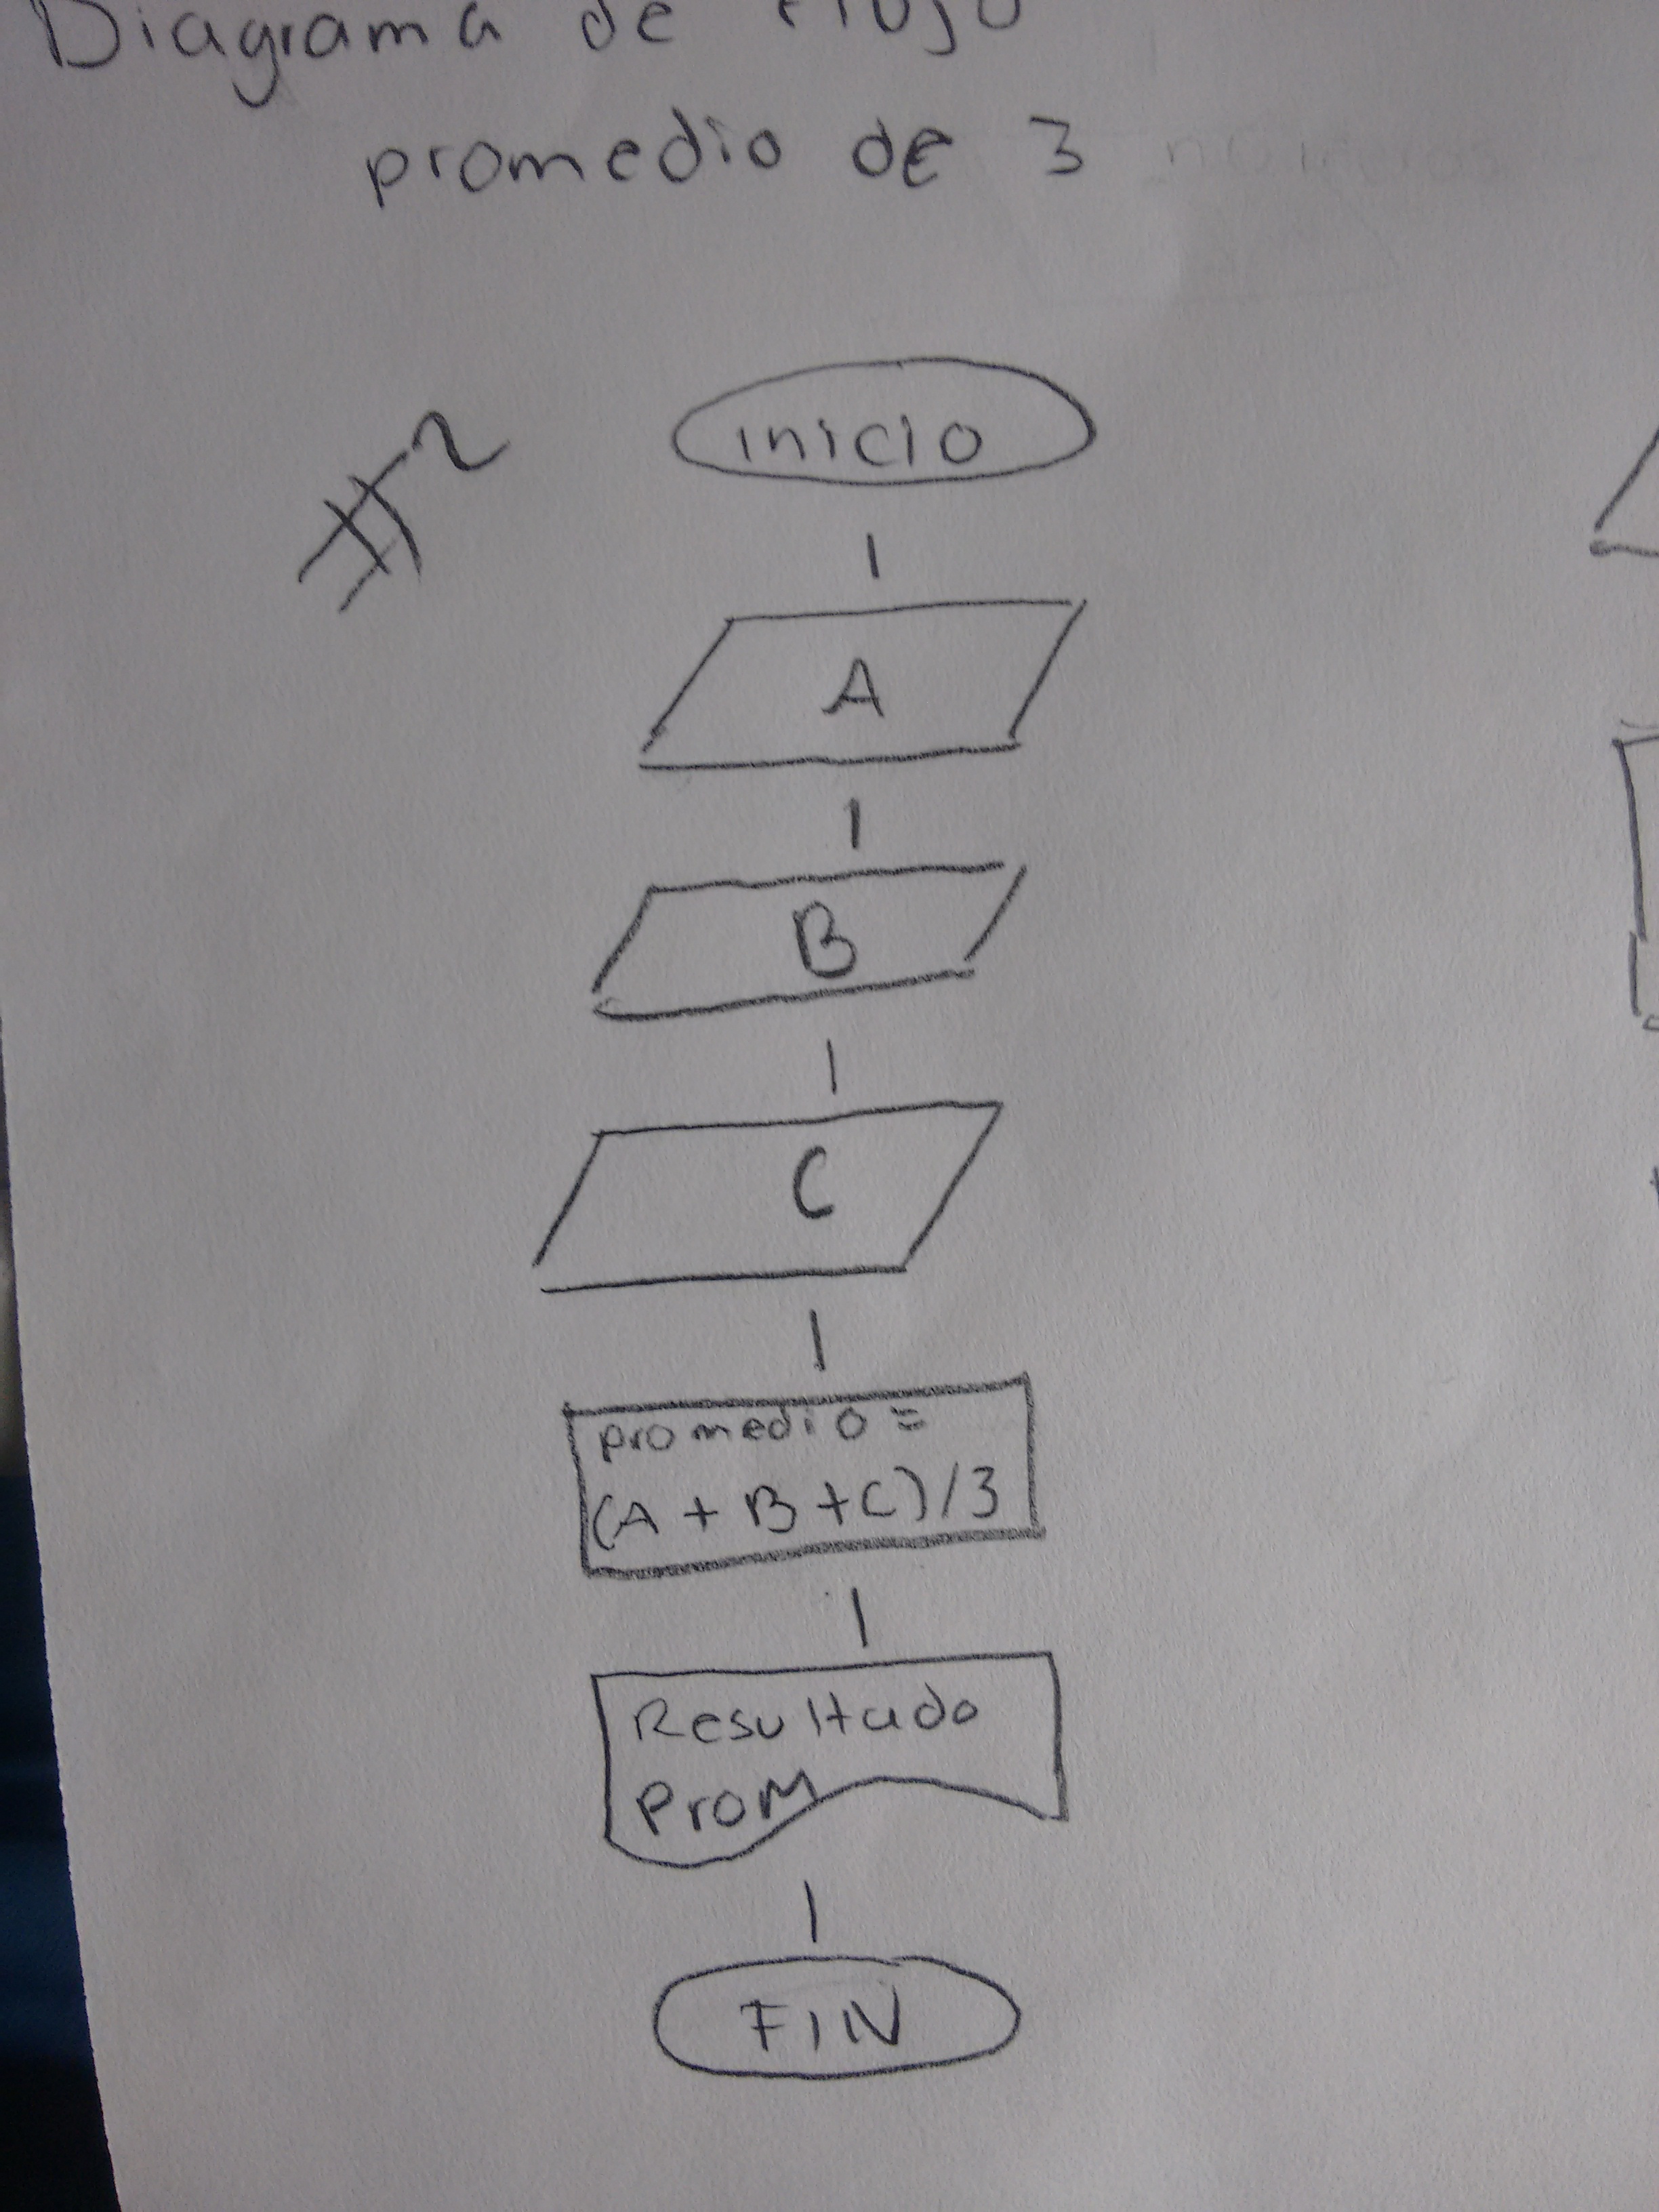 Diagrama de Flujo
promedio de 3
#2
inicio
A
B
C
promedio =
(A + B + C) / 3
Resultado
ProM
FIN